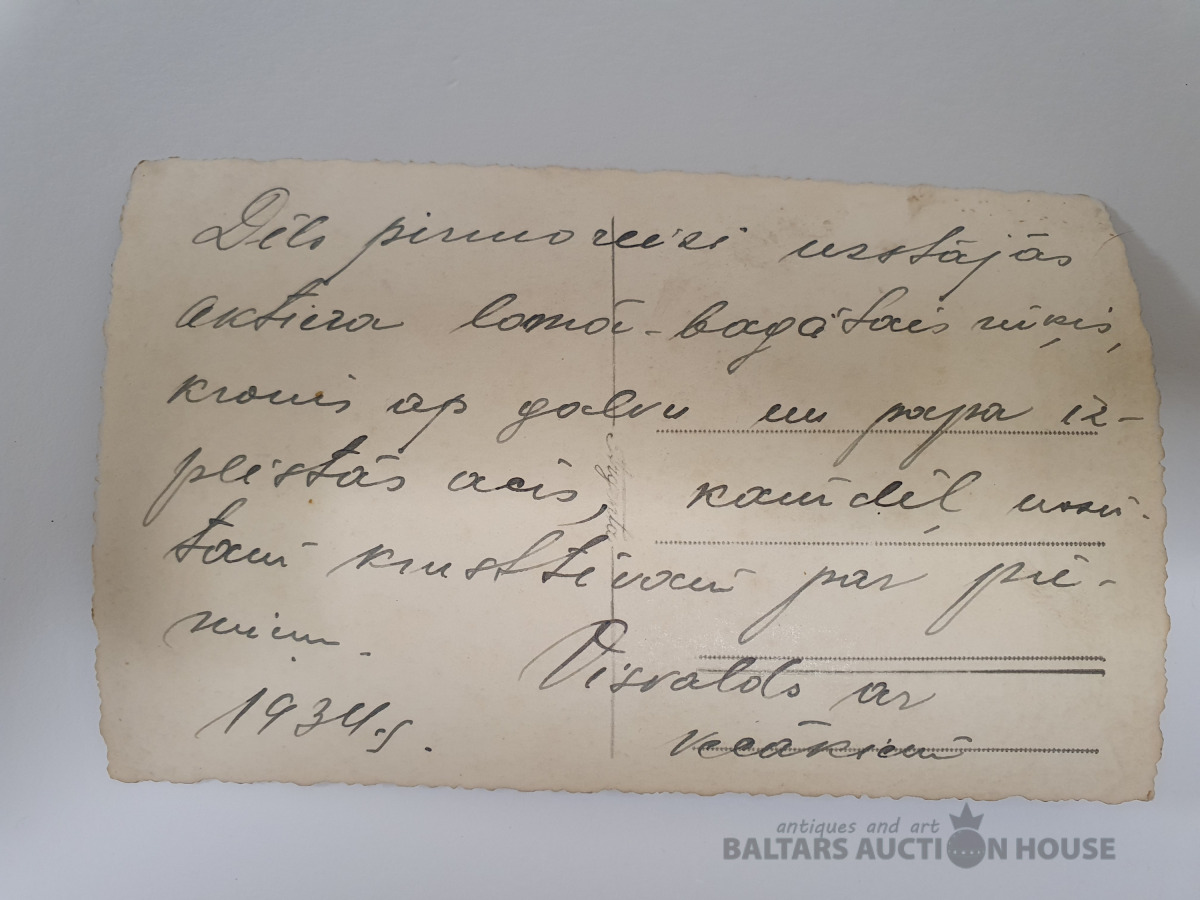 Dēls pirmoreizi uzstājās
aktiera lomā - bagātais rūķis,
kronis ap galvu un papa iz-
plēstās acis, kamdēļ
tam krusttēvam par pie-
miņu.
Visvalds ar
vecākiem
1934.g.
antiques and art
BALTARS AUCTION HOUSE